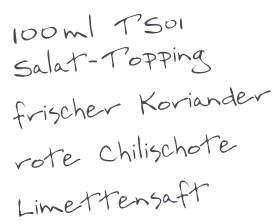 100ml TSOI
Salat-Topping
frischer Koriander
rote Chilischote
Limettensaft